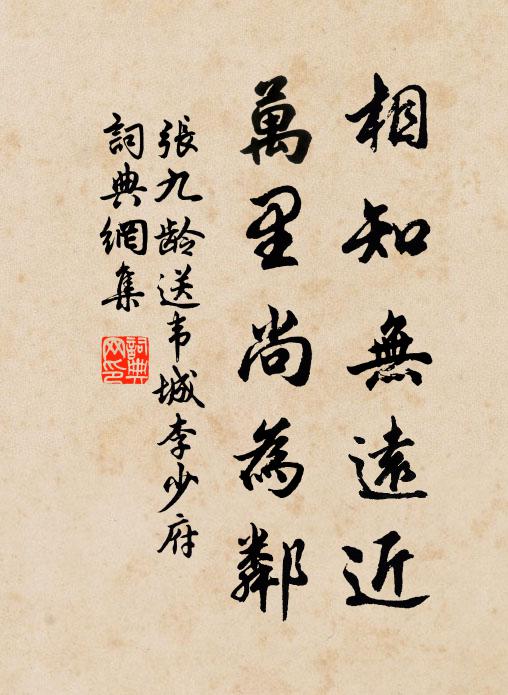 相知無遠近
萬里尚為鄰
張九龄送韦城李少府
詞典網集
詞典
网印